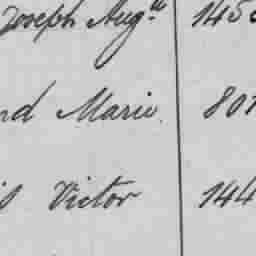 Joseph Aug.te 145
nd Marie. 801
s Victor 144